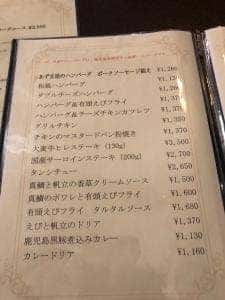 あずま豚のハンバーグ ポークソーセージ添え ¥1,260
和風ハンバーグ ¥1,130
ダブルチーズハンバーグ ¥1,260
ハンバーグ&有頭えびフライ ¥1,370
ハンバーグ&チーズチキンカツレツ ¥1,370
グリルチキン ¥1,210
チキンのマスタードパン粉焼き ¥1,370
大麦牛ヒレステーキ (130g) ¥3,500
国産サーロインステーキ (200g) ¥2,700
タンシチュー ¥2,650
真鯛と帆立の香草クリームソース ¥1,500
真鯛のポワレと有頭えびフライ ¥1,600
有頭えびフライ タルタルソース ¥1,680
えびと帆立のドリア ¥1,370
鹿児島黒豚煮込みカレー ¥1,130
カレードリア ¥1,160